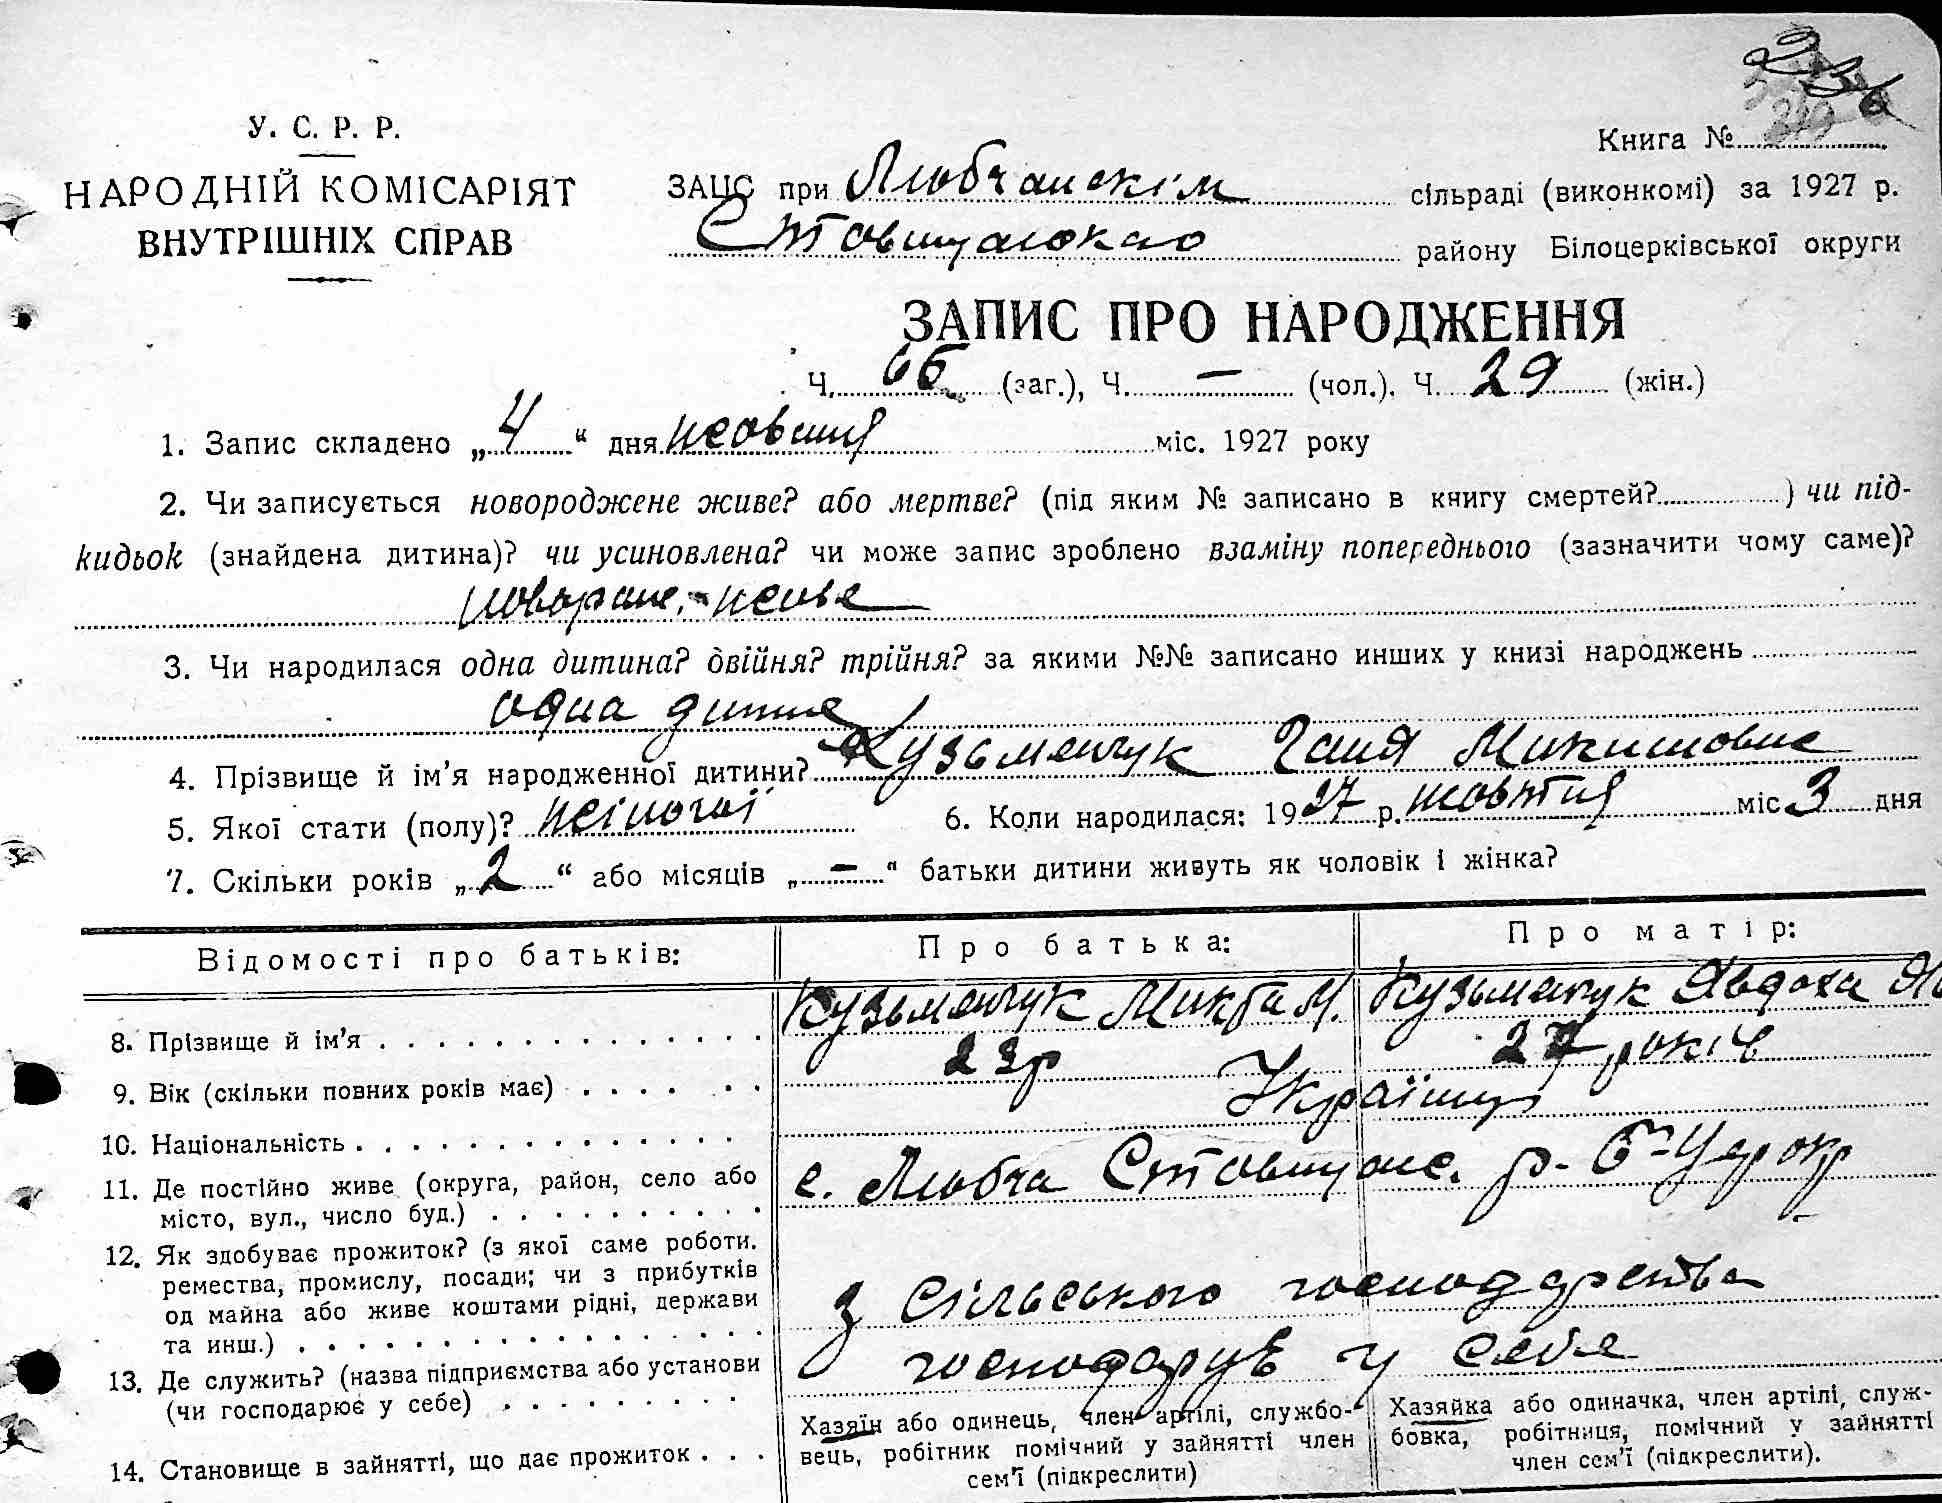 236
У. С. Р. Р.
НАРОДНІЙ КОМІСАРІЯТ
ВНУТРІШНІХ СПРАВ
Книга №
ЗАЦС при Любчанскім сільраді (виконкомі) за 1927 р.
району Білоцерківської округи
ЗАПИС ПРО НАРОДЖЕННЯ
Ч. 66 (заг.), Ч. — (чол.). Ч 29 (жін.)
1. Запис складено „4“ дня жовтня міс. 1927 року
2. Чи записується новороджене живе? або мертве? (під яким № записано в книгу смертей? ) чи під-
кидьок (знайдена дитина)? чи усиновлена? чи може запис зроблено взаміну попереднього (зазначити чому саме)?
живе
3. Чи народилася одна дитина? двійня? трійня? за якими №№ записано инших у книзі народжень
одна
4. Прізвище й ім'я народженної дитини? Кузьменчук Ганя Микитовна
5. Якої стати (полу)? жіночої 6. Коли народилася: 1927 р. жовтня міс 3 дня
7. Скільки років „2“ або місяців „—“ батьки дитини живуть як чоловік і жінка?
Відомості про батьків: Про батька: Про матір:
8. Прізвище й ім'я Кузьменчук Микита М. Кузьменчук Явдоха Як
9. Вік (скільки повних років має) 23р 27 років
10. Національність Українці
11. Де постійно живе (округа, район, село або
місто, вул., число буд.) с. Любча р. Б-Ц окр
12. Як здобуває прожиток? (з якої саме роботи.
ремества, промислу, посади; чи з прибутків
од майна або живе коштами рідні, держави
та инш.) З сільського господарства
13. Де служить? (назва підприємства або установи
(чи господарює у себе) господарує у себе
14. Становище в зайнятті, що дає прожиток
Хазяїн або одинець, член артілі, службо-
вець, робітник помічний у зайнятті член
сем'ї (підкреслити)
Хазяйка або одиначка, член артілі, служ-
бовка, робітниця, помічний у зайнятті
член сем'ї (підкреслити).